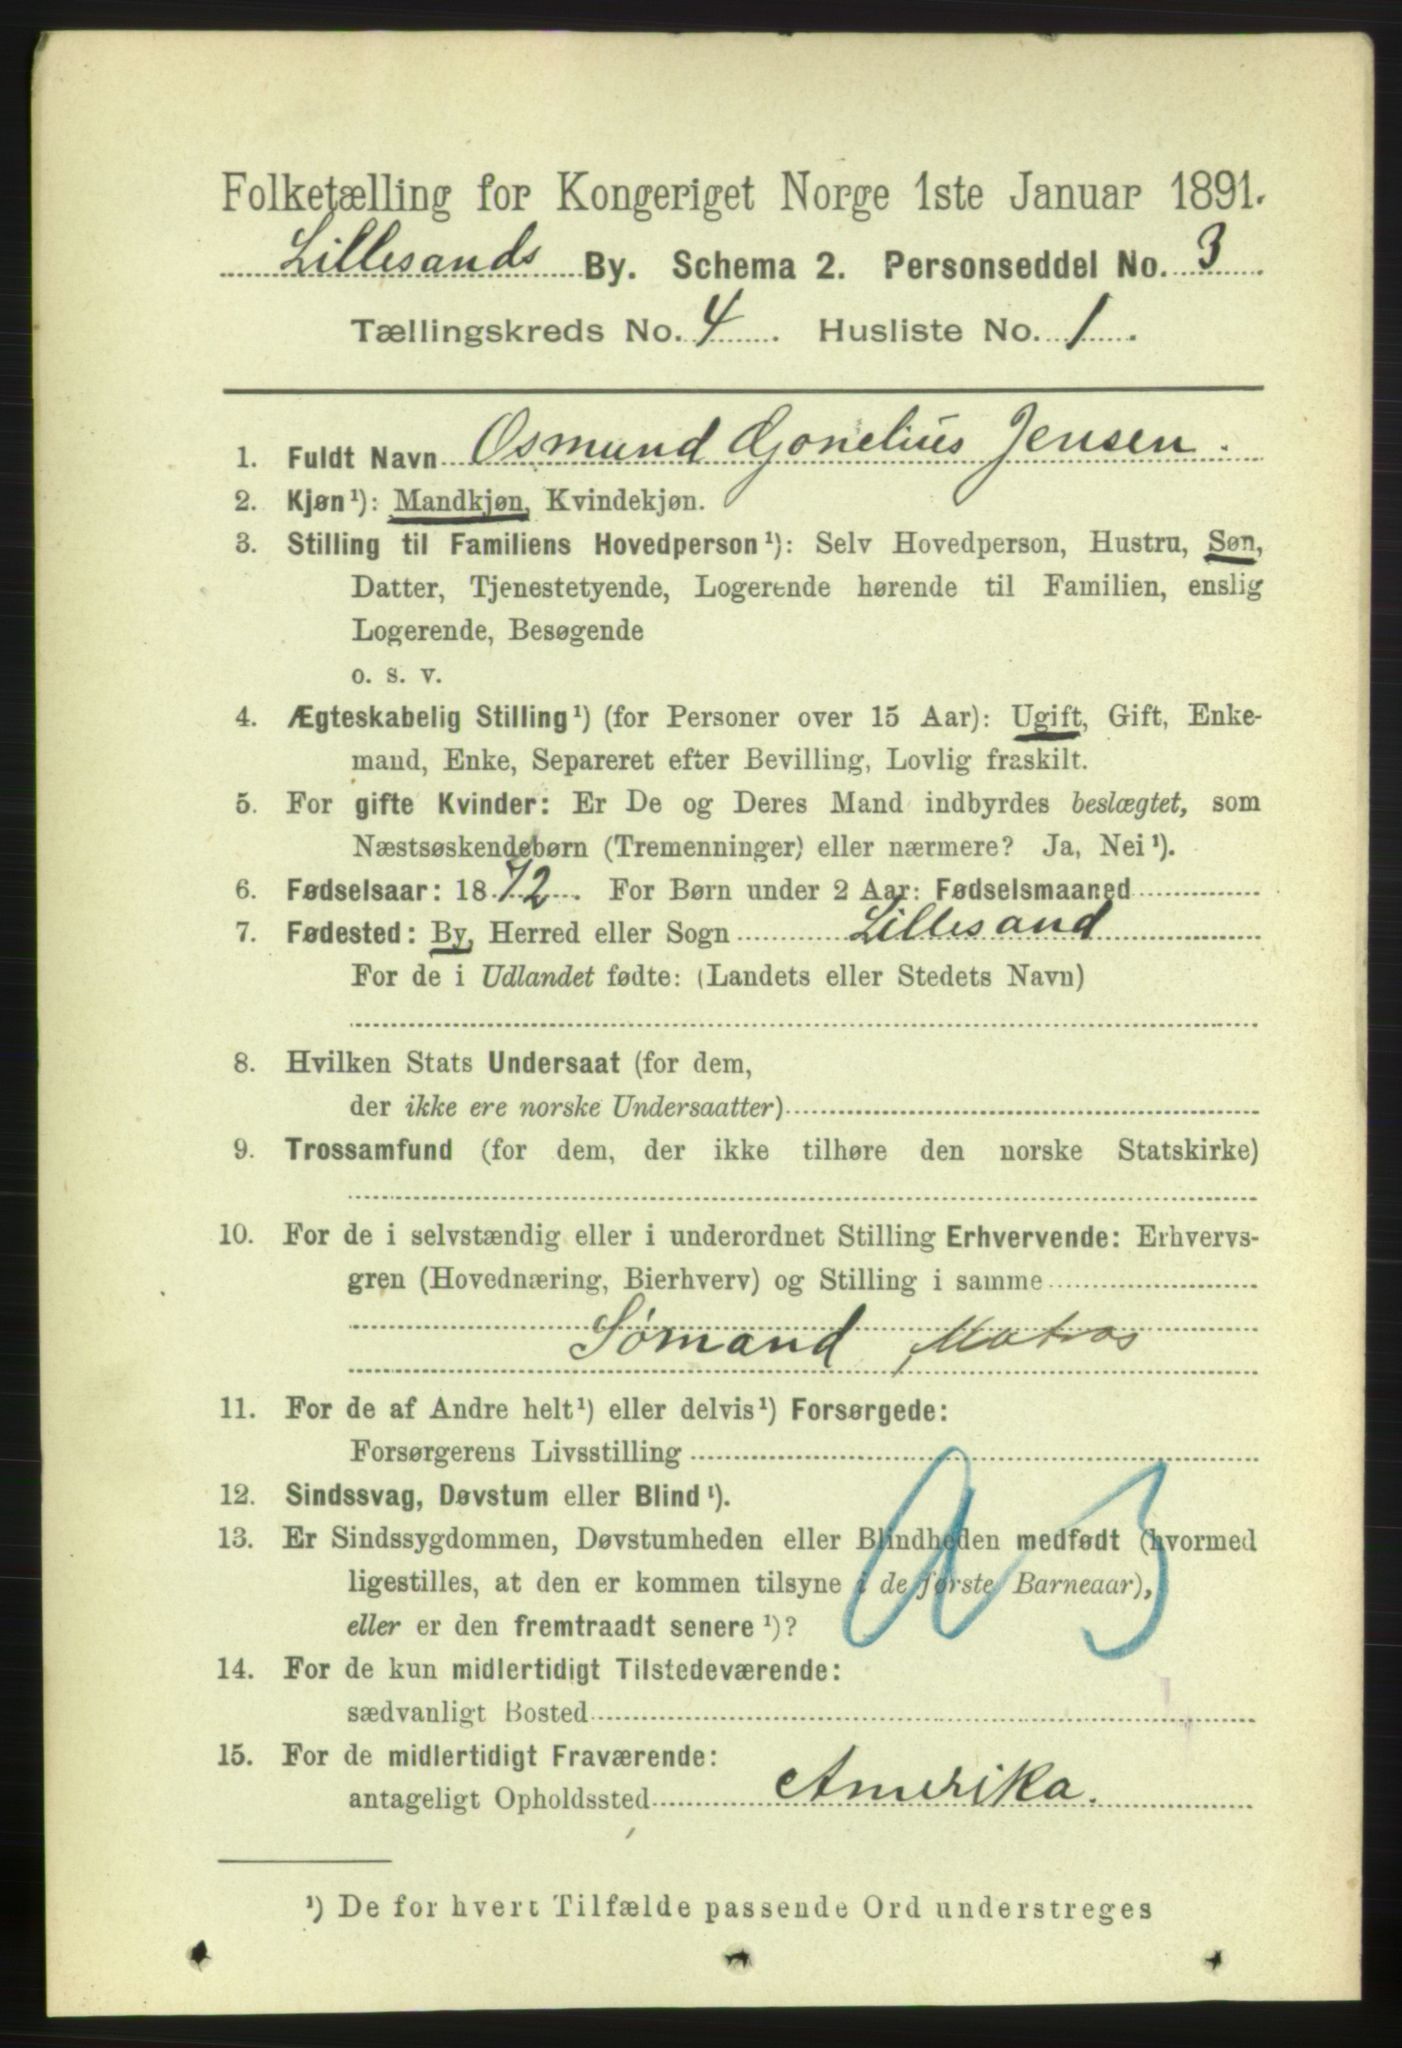 Folketælling for Kongeriget Norge 1ste Januar 1891.
Lillesands By. Schema 2. Personseddel No. 3
Tællingskreds No. 4. Husliste No. 1.
1. Fuldt Navn Osmund Gjonelius Jensen.
2. Kjøn¹): Mandkjøn, Kvindekjøn.
3. Stilling til Familiens Hovedperson¹): Selv Hovedperson, Hustru, Søn,
Datter, Tjenestetyende, Logerende hørende til Familien, enslig
Logerende, Besøgende
o. s. v.
4. Ægteskabelig Stilling¹) (for Personer over 15 Aar): Ugift, Gift, Enke-
mand, Enke, Separeret efter Bevilling, Lovlig fraskilt.
5. For gifte Kvinder: Er De og Deres Mand indbyrdes beslægtet, som
Næstsøskendebørn (Tremenninger) eller nærmere? Ja, Nei¹).
6. Fødselsaar: 1872. For Børn under 2 Aar: Fødselsmaaned
7. Fødested: By, Herred eller Sogn Lillesand
For de i Udlandet fødte: (Landets eller Stedets Navn)
8. Hvilken Stats Undersaat (for dem,
der ikke ere norske Undersaatter)
9. Trossamfund (for dem, der ikke tilhøre den norske Statskirke)
10. For de i selvstændig eller i underordnet Stilling Erhvervende: Erhvervs-
gren (Hovednæring, Bierhverv) og Stilling i samme
Sømand, Matros
11. For de af Andre helt¹) eller delvis¹) Forsørgede:
Forsørgerens Livsstilling
12. Sindssvag, Døvstum eller Blind¹).
13. Er Sindssygdommen, Døvstumheden eller Blindheden medfødt (hvormed
ligestilles, at den er kommen tilsyne i de første Barneaar),
eller er den fremtraadt senere¹)?
14. For de kun midlertidigt Tilstedeværende:
sædvanligt Bosted
15. For de midlertidigt Fraværende:
antageligt Opholdssted Amerika.
¹) De for hvert Tilfælde passende Ord understreges